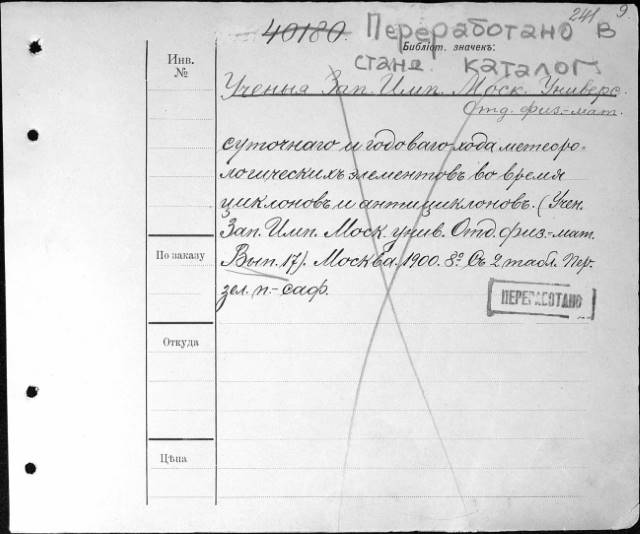 241 9.
40180. Переработано в
Библіот. значекъ:
станд. каталог
Инв.
№
Ученыя Зап. Имп. Моск. Универс.
Отд. физ.-мат.
суточнаго и годоваго хода метеоро-
логическихъ элементовъ во время
циклоновъ и антициклоновъ. (Учен.
Зап. Имп. Моск. унив. Отд. физ.-мат.
По заказу
Вып. 17). Москва. 1900. 8º. Съ 2 табл. Пер.
зел. п.-саф.
ПЕРЕРАБОТАНО
Откуда
Цѣна